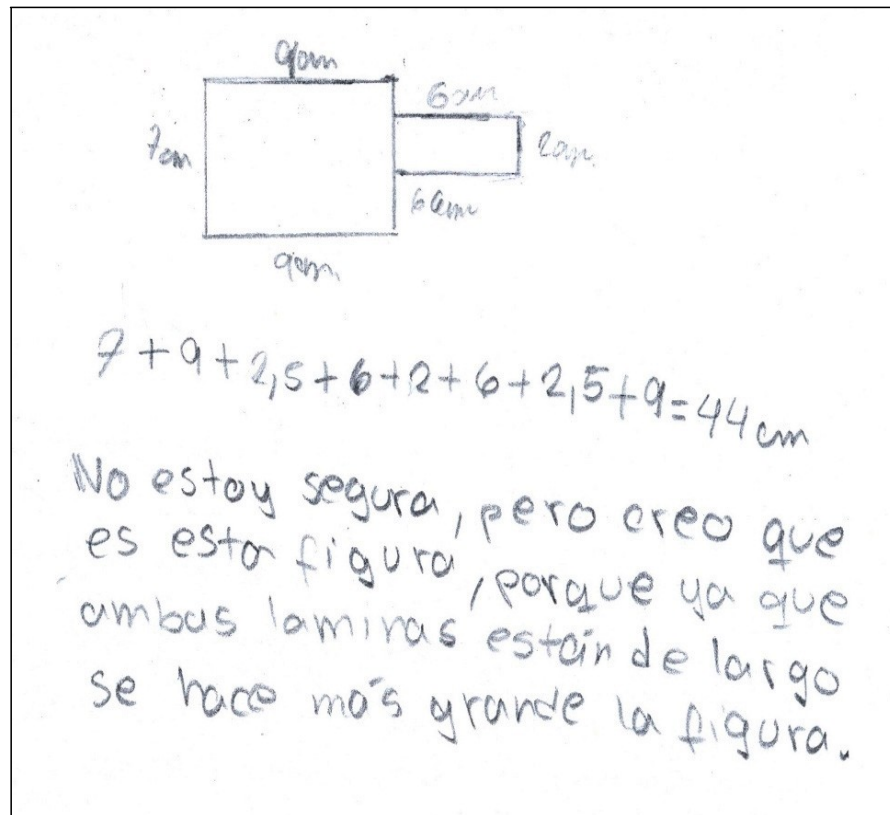 9cm
6cm
7cm
2cm
6cm
9cm
7+9+2,5+6+2+6+2,5+9=44cm
No estoy segura, pero creo que
es esta figura, porque ya que
ambas laminas están de largo
se hace más grande la figura.